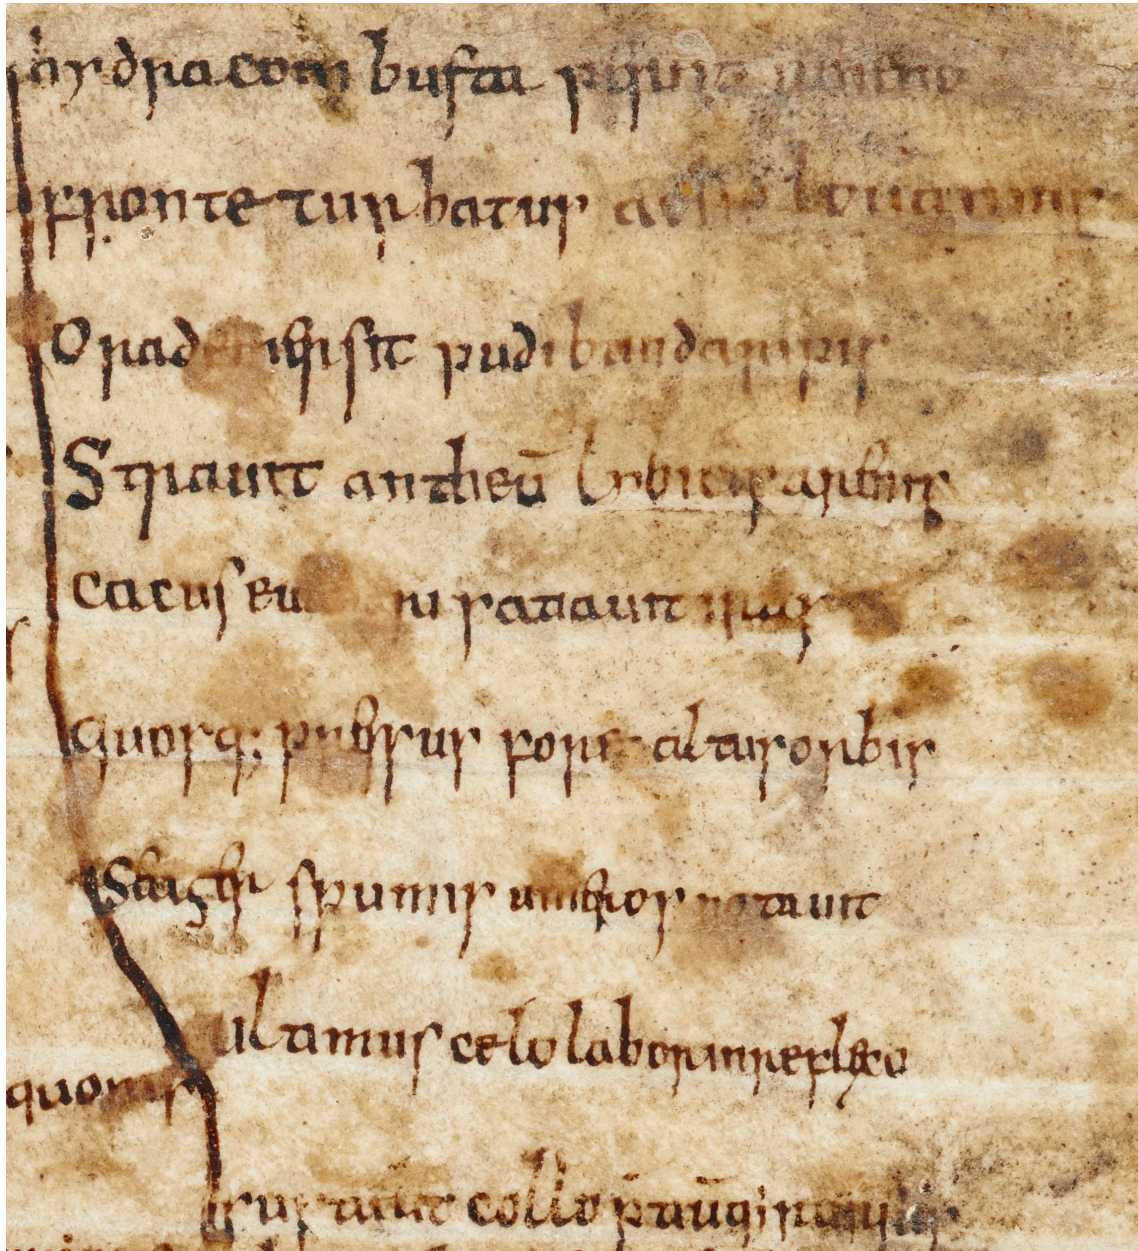 hydra com busta periit
fronte turbatus
Ora dem ersit pudibanda ripis
Strauit antheū lybicis arenis
cacus eu ri satiauit iras
quosq; presurus fore altus orbis
Setiger spumis umeros notauit
ultimus celo labor inreflexo
sustulit collo p̄tiūq;